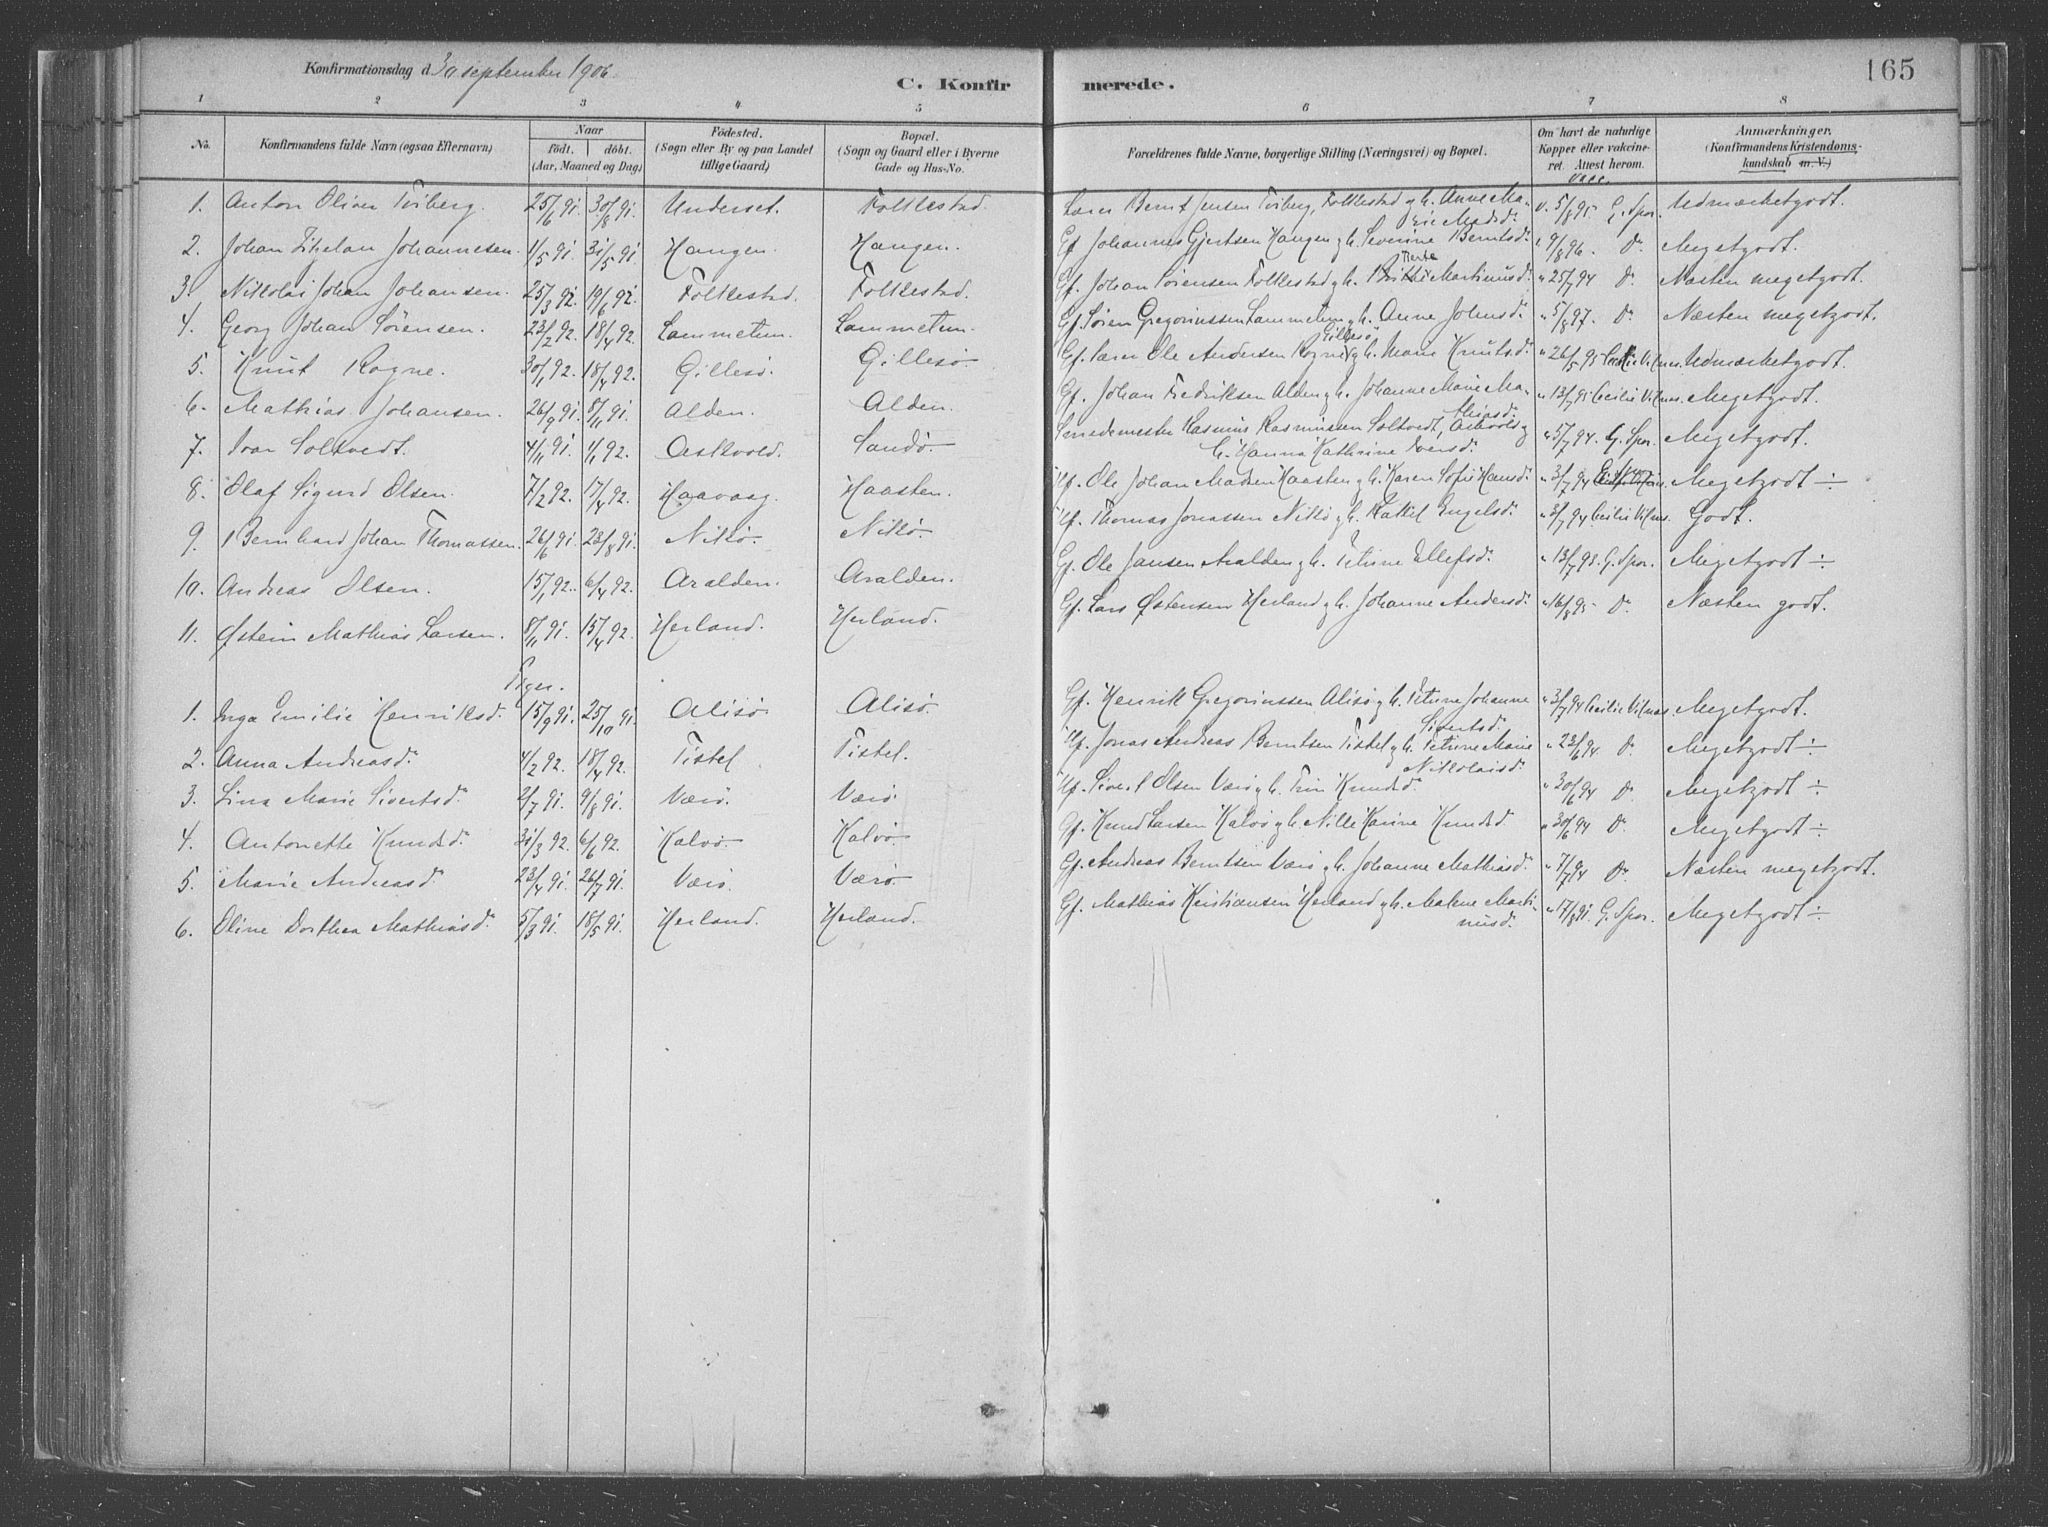 Konfirmationsdag d 30 september 1906.
C. Konfir merede.
165
1 2 3 4 5 6 7 8
No.
Konfirmandens fulde Navn (ogsaa Efternavn)
Naar
Födt. döbt.
(Aar, Maaned og Dag)
Födested.
(Sogn eller By og paa Landet
tillige Gaard)
Bopæl.
(Sogn og Gaard eller i Byerne
Gade og Hus-No.
Forældrenes fulde Navne, borgerlige Stilling (Næringsvei) og Bopæl.
Om havt de naturlige
Kopper eller vakcine-
ret. Attest herom.
vacc.
Anmærkninger.
(Konfirmandens Kristendoms-
kundskab m. V.)
1. Anton Olian Tviberg. 25/6 91. 30/8 91. Underset. Folkestad. Lærer Bernt Jensen Tviberg, Folkestad og h. Anne Ma- v. 5/8 95 G. Spor. Udmærketgodt.
rie Madsdr
2. Johan Johannesen. 1/5 91 31/5 91. Haugen Haugen. Gf. Johannes Gjertsen Haugen og h. Severine Berntsdr " 9/8 96. Do Megetgodt.
3. Nikolai Johan Johansen. 25/3 92. 19/6 92. Folkestad. Folkestad. Gf. Johan Sörensen Folkestad og h. Berte Martinusdr " 25/7 94 Do Næsten megetgodt.
4. Georg Johan Sörensen. 23/2 92. 18/4 92. Lammetun. Lammetun. Gf. Sören Gregoriussen Lammetun og h. Anne Johnsdr " 5/8 97. Do Næsten megetgodt.
5. Knut Rogne. 30/1 92. 18/4 92. Gillesö. Gillesö. Gf. Lærer Ole Andersen Rogne, Gillesö og h. Marie Knutsdr " 26/5 93 Cecilie Vilnes. Udmærketgodt.
6. Mathias Johansen. 26/9 91. 8/11 91. Alden. Alden. Gf. Johan Fredriksen Alden og h. Johanne Marie Ma- " 13/7 95 Cecilie Vilnes. Megetgodt.
thiasdr
7. Ivar Soltvedt. 4/11 91. 1/1 92. Askvold. Sandö. Smedemester Rasmus Rasmussen Soltvedt, Askvold og " 5/7 94. G. Spor. Megetgodt.
h. Hanna Kathrine Iversdr
8. Olaf Sigurd Olsen. 7/2 92. 17/4 92. Haavaag. Haasten. Ole Johan Madsen Haasten og h. Karen Sofie Hansdr " 3/7 94 Megetgodt ÷
9. Bernhard Johan Thomassen. 26/6 91. 23/8 91. Nikö. Nikö. Thomas Jonassen Nikö og h. Rakkel Engelsdr " 3/7 94 Cecilie Vilnes. Godt.
10. Andreas Olsen. 15/1 92. 6/4 92. Aralden. Aralden. Gf. Ole Jansen Aralden og h. Petrine Ellefsdr " 13/7 93. G. Spor. Megetgodt ÷
11. Østein Mathias Larsen. 8/11 91. 15/4 92. Herland. Herland. Gf. Lars Østensen Herland og h. Johanne Andersdr " 16/8 95 Do Næsten godt.
Piger.
1. Inga Emilie Henriksd. 15/9 91. 25/10 91. Alisö Alisö. Gf. Henrik Gregoriussen Alisö og h. Petrine Johanne " 3/7 94 Cecilie Vilnes. Megetgodt.
Sivertsdr
2. Anna Andreasdr 4/2 92. 18/4 92. Tistel Tistel. Jonas Andreas Berntsen Tistel og h. Petrine Marie " 23/6 94 Do Megetgodt ÷
Nikolaisdr
3. Lina Marie Sivertsdr 2/7 91. 9/8 91. Værö. Værö. Sivert Olsen Værö og h. Knudsdr " 30/6 94 Do Megetgodt ÷
4. Antonette Knudsdr 31/3 92. 6/6 92. Kalvö. Kalvö. Gf. Knud Larsen Kalvö og h. Nille Karine Knudsdr " 30/6 94 Do Megetgodt ÷
5. Marie Andreasdr 23/4 91. 26/7 91. Værö. Værö. Gf. Andreas Berntsen Værö og h. Johanne Mathiasdr " 7/7 94 Do Næsten megetgodt.
6. Oline Dorthea Mathiasdr 5/3 91. 18/5 91. Herland. Herland. Gf. Mathias Kristiansen Herland og h. Malene Marti- " 17/8 91. G. Spor. Megetgodt ÷
nusd.